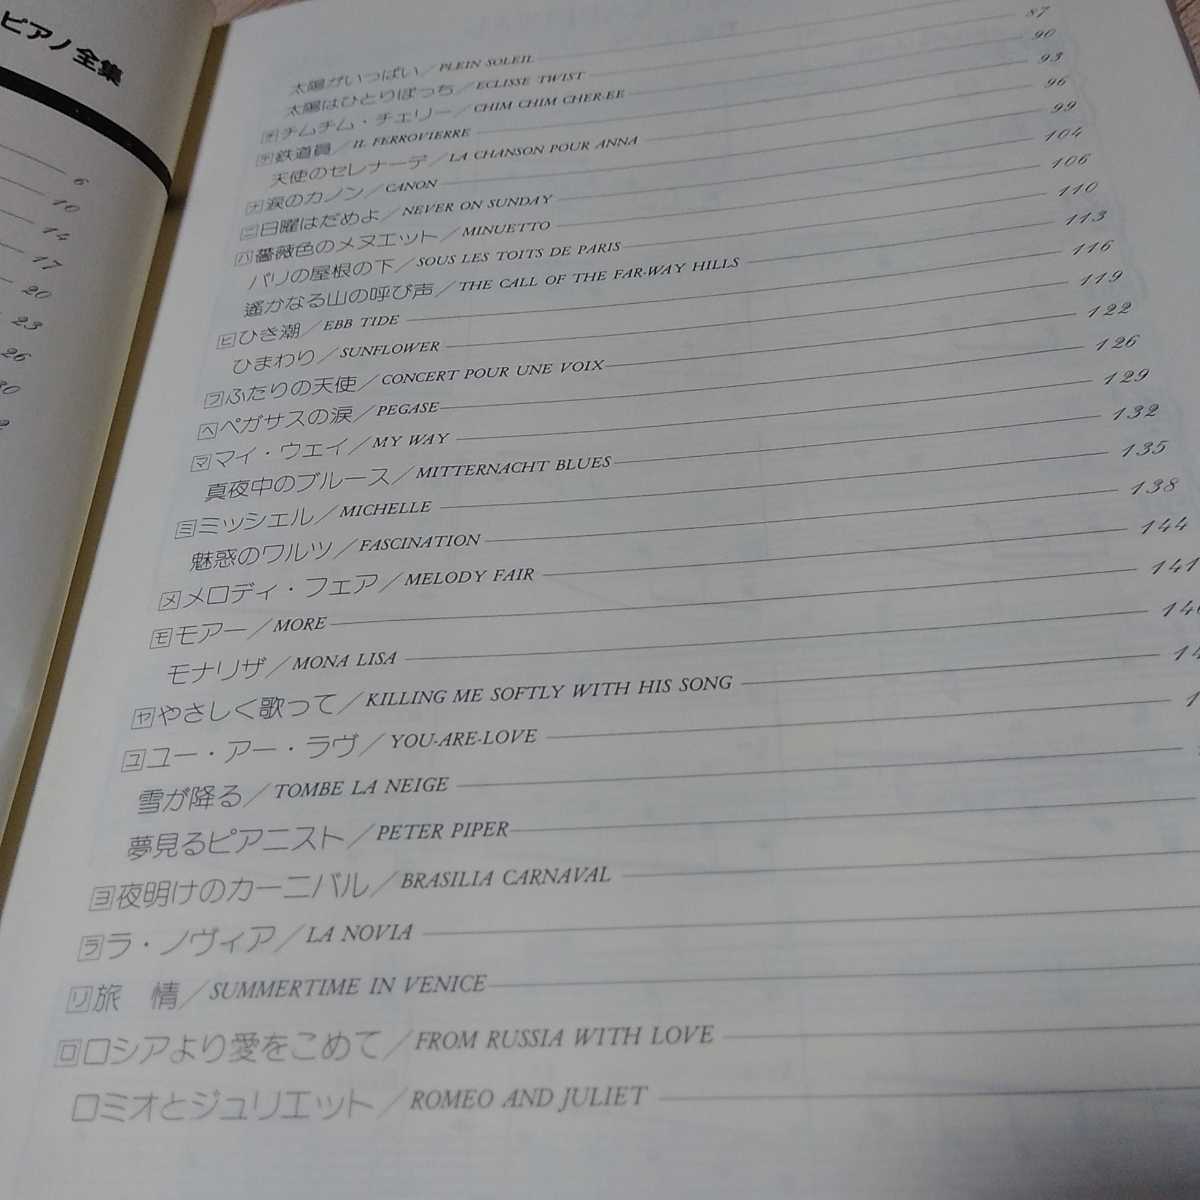 ピアノ全集
6
10
14
17
20
23
26
30
太陽がいっぱい／PLEIN SOLEIL
太陽はひとりぼっち／ECLISSE TWIST 87
チ チムチム・チェリー／CHIM CHIM CHER-EE 90
テ 鉄道員／IL FERROVIERRE 93
天使のセレナーデ／LA CHANSON POUR ANNA 96
ナ 涙のカノン／CANON 99
ニ 日曜はだめよ／NEVER ON SUNDAY 104
ハ 薔薇色のメヌエット／MINUETTO 106
パリの屋根の下／SOUS LES TOITS DE PARIS 110
遙かなる山の呼び声／THE CALL OF THE FAR-WAY HILLS 113
ヒ ひき潮／EBB TIDE 116
ひまわり／SUNFLOWER 119
フ ふたりの天使／CONCERT POUR UNE VOIX 122
ヘ ペガサスの涙／PEGASE 126
マ マイ・ウェイ／MY WAY 129
真夜中のブルース／MITTERNACHT BLUES 132
ミ ミッシェル／MICHELLE 135
魅惑のワルツ／FASCINATION 138
メ メロディ・フェア／MELODY FAIR 144
モ モアー／MORE 141
モナリザ／MONA LISA
ヤ やさしく歌って／KILLING ME SOFTLY WITH HIS SONG
ユ ユー・アー・ラヴ／YOU-ARE-LOVE
雪が降る／TOMBE LA NEIGE
夢見るピアニスト／PETER PIPER
ヨ 夜明けのカーニバル／BRASILIA CARNAVAL
ラ ラ・ノヴィア／LA NOVIA
リ 旅　情／SUMMERTIME IN VENICE
ロ ロシアより愛をこめて／FROM RUSSIA WITH LOVE
ロミオとジュリエット／ROMEO AND JULIET